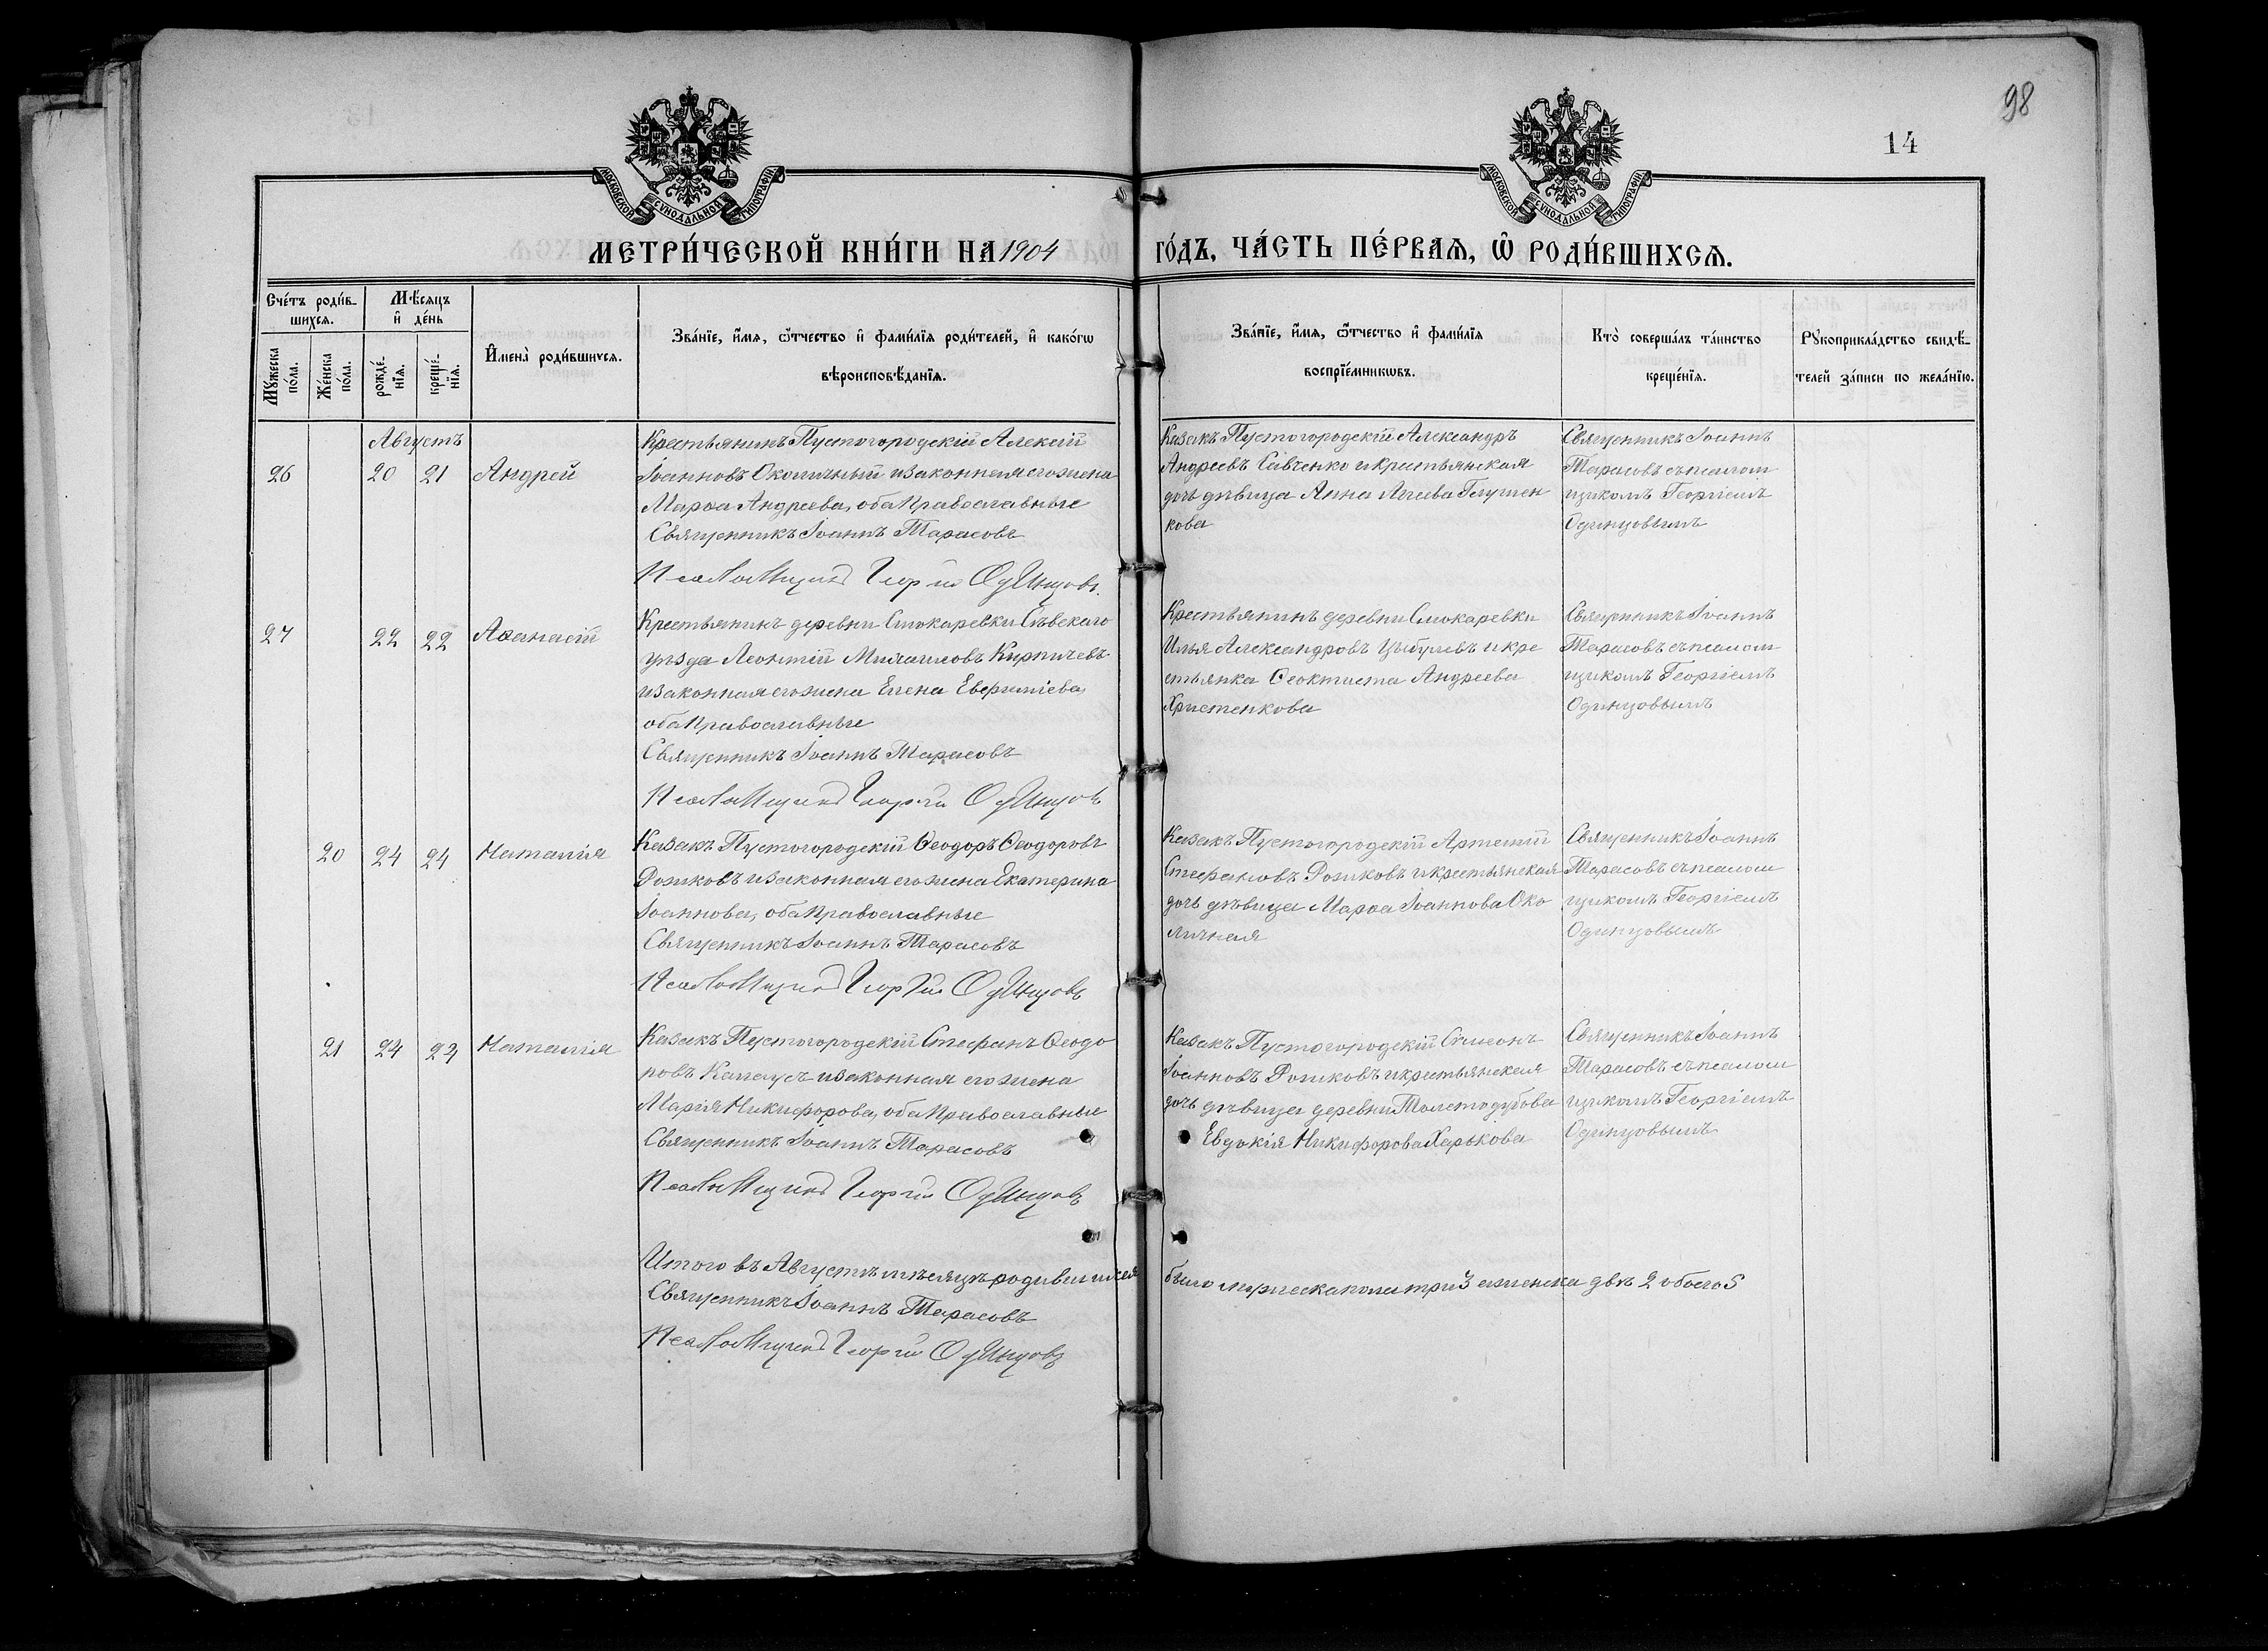 98
14
МОСКОВСКОЙ СѴНОДАЛЬНОЙ ТИПОГРАФІИ
МОСКОВСКОЙ СѴНОДАЛЬНОЙ ТИПОГРАФІИ
МЕТРИ́ЧЕСКОЙ КНИ́ГИ НА 1904 ГО́ДЪ, ЧА́СТЬ ПЕ́РВАѦ, Ѡ҆ РОДИ́ВШИХСѦ.
Сче́тъ роди́в-
шихсѧ.
Мꙋ́жеска по́ла.
Же́нска по́ла.
Мѣ́сѧцъ
и҆ де́нь
рожде́-
нїѧ.
креще́-
нїѧ.
И҆мена̀ роди́вшихсѧ.
Зва́нїе, и҆́мѧ, ѻ҆́тчество и҆ фами́лїѧ роди́телей, и҆ како́гѡ
вѣроисповѣ́данїѧ.
Зва́нїе, и҆́мѧ, ѻ҆́тчество и҆ фами́лїѧ
воспрїе́мникѡвъ.
Кто̀ соверша́лъ та́инство
креще́нїѧ.
Рꙋкоприкла́дство свидѣ́-
телей за́писи по жела́нїю.
Августъ
26 20 21 Андрей
Крестьянинъ Пустогородскій Алексій
Іоанновъ Околичный и законная его жена
Марѳа Андреева, оба православные
Священникъ Іоаннъ Тарасовъ
Псаломщикъ Георгій Одинцовъ.
Казакъ Пустогородскій Александръ
Андреевъ Савченко и крестьянская
дочь дѣвица Анна Глушен
кова
Священникъ Іоаннъ
Тарасовъ съ псалом
щикомъ Георгіемъ
Одинцовымъ
27 22 22 Аѳанасій
Крестьянинъ деревни Слюкаревки Сѣвскаго
уѣзда Леонтій Кирпичевъ
и законная его жена Елена Евфиміева,
оба православные
Священникъ Іоаннъ Тарасовъ
Псаломщикъ Георгій Одинцовъ
Крестьянинъ деревни Слюкаревки
Илья Александровъ Цыбулевъ и кре
стьянка Ѳеоктиста Андреева
Христенкова
Священникъ Іоаннъ
Тарасовъ съ псалом
щикомъ Георгіемъ
Одинцовымъ
20 24 24 Наталія
Казакъ Пустогородскій Ѳеодоръ Ѳеодоровъ
Рожковъ и законная его жена Екатерина
Іоаннова, оба православные
Священникъ Іоаннъ Тарасовъ
Псаломщикъ Георгій Одинцовъ
Казакъ Пустогородскій Артемій
Стефановъ Рожковъ и крестьянская
дочь дѣвица Марѳа Іоаннова Око
личная
Священникъ Іоаннъ
Тарасовъ съ псалом
щикомъ Георгіемъ
Одинцовымъ
21 24 Наталія
Казакъ Пустогородскій Стефанъ Ѳеодо
ровъ и законная его жена
Марія Никифорова, оба православные
Священникъ Іоаннъ Тарасовъ
Псаломщикъ Георгій Одинцовъ
Казакъ Пустогородскій Симеонъ
Іоанновъ Рожковъ и крестьянская
дочь дѣвица деревни Толстодубова
Евдокія Никифорова Харькова
Священникъ Іоаннъ
Тарасовъ съ псалом
щикомъ Георгіемъ
Одинцовымъ
Итого въ Августѣ мѣсяцѣ родившихся было мужеска пола три 3 а женска двѣ 2 обоего 5
Священникъ Іоаннъ Тарасовъ
Псаломщикъ Георгій Одинцовъ